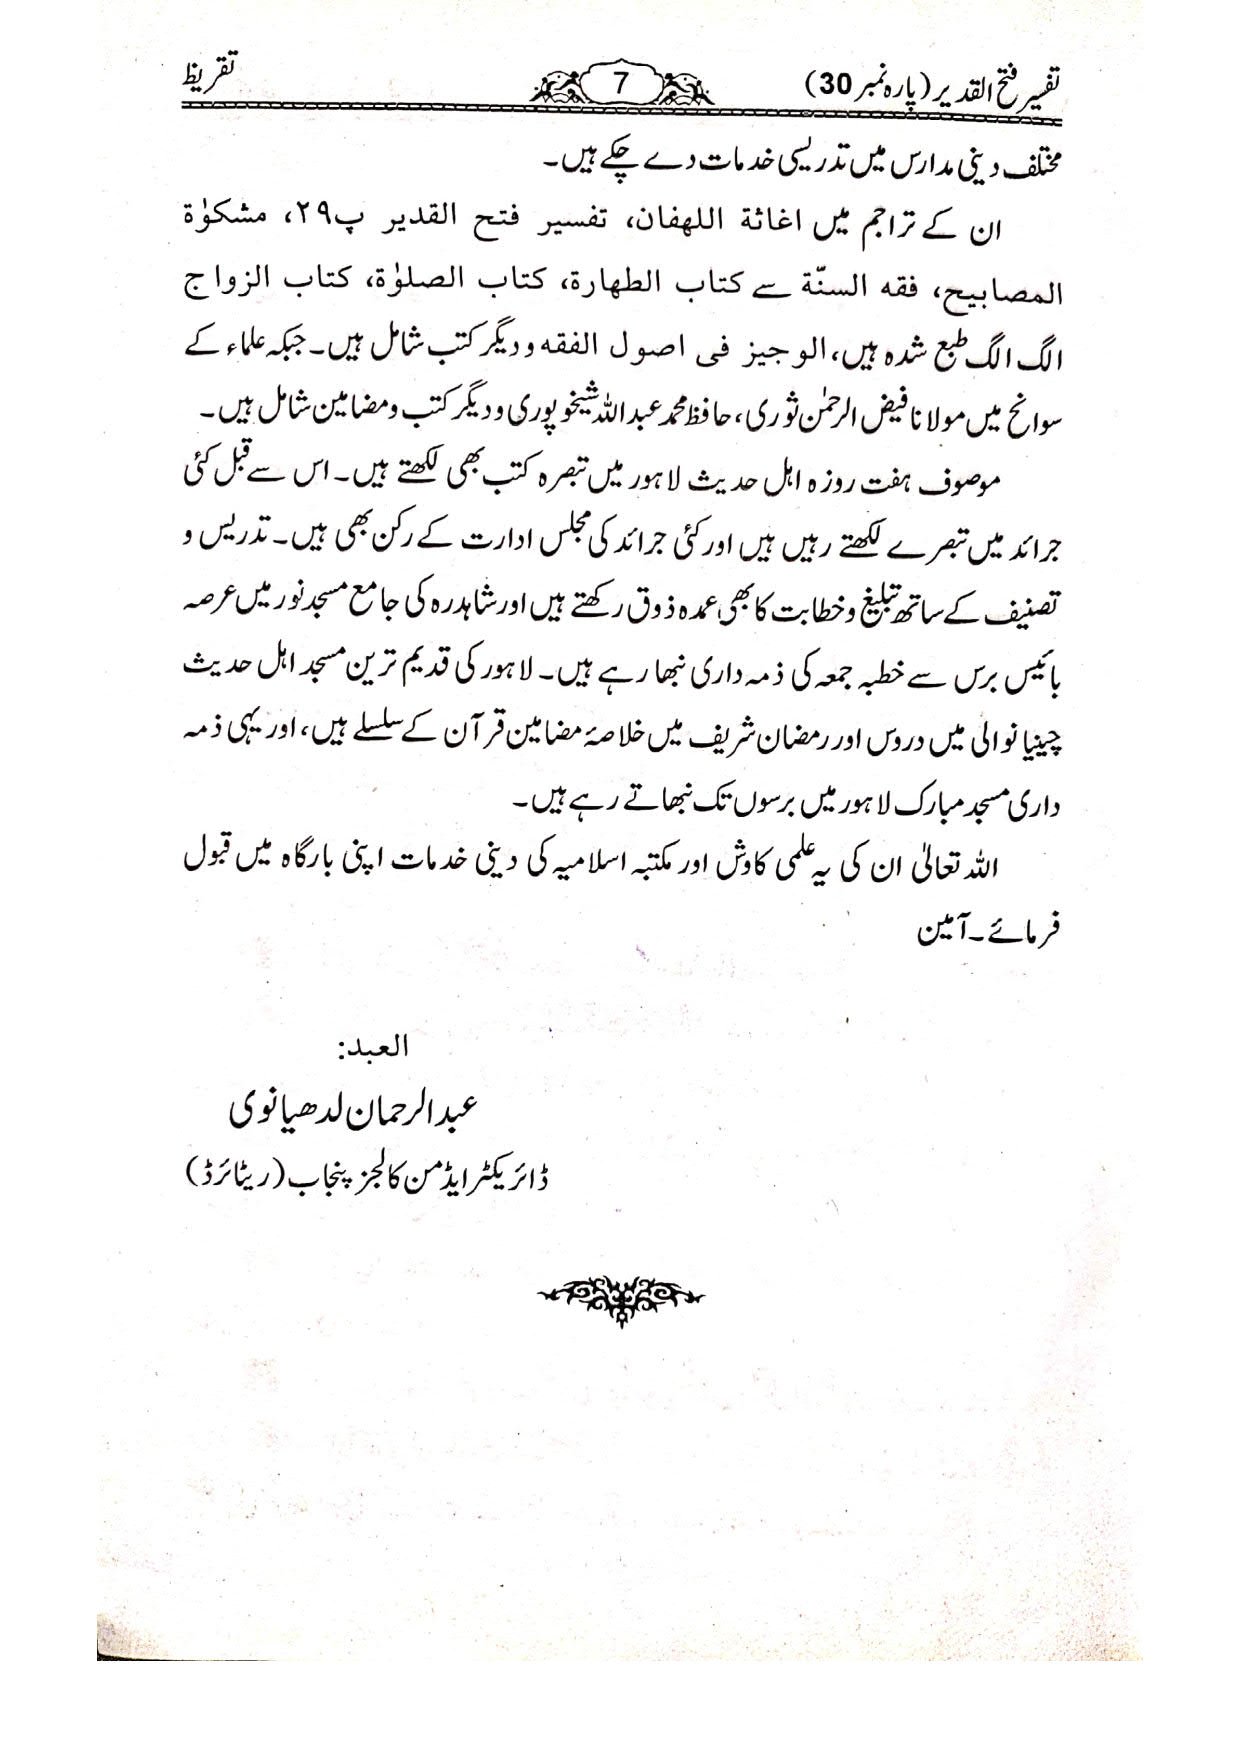 تفسیر فتح القدیر (پارہ نمبر 30) 7 تقریظ
مختلف دینی مدارس میں تدریسی خدمات دے چکے ہیں۔
ان کے تراجم میں اغاثة اللهفان، تفسیر فتح القدیر پ۲۹، مشکوٰة
المصابیح، فقه السنّة سے کتاب الطهارة، کتاب الصلوٰة، کتاب الزواج
الگ الگ طبع شدہ ہیں، الوجیز فی اصول الفقه و دیگر کتب شامل ہیں۔ جبکہ علماء کے
سوانح میں مولانا فیض الرحمٰن ثوری، حافظ محمد عبداللہ شیخوپوری و دیگر کتب و مضامین شامل ہیں۔
موصوف ہفت روزہ اہل حدیث لاہور میں تبصرہ کتب بھی لکھتے ہیں۔ اس سے قبل کئی
جرائد میں تبصرے لکھتے رہیں ہیں اور کئی جرائد کی مجلس ادارت کے رکن بھی ہیں۔ تدریس و
تصنیف کے ساتھ تبلیغ و خطابت کا بھی عمدہ ذوق رکھتے ہیں اور شاہدرہ کی جامع مسجد نور میں عرصہ
بائیس برس سے خطبہ جمعہ کی ذمہ داری نبھا رہے ہیں۔ لاہور کی قدیم ترین مسجد اہل حدیث
چینیانوالی میں دروس اور رمضان شریف میں خلاصۂ مضامین قرآن کے سلسلے ہیں، اور یہی ذمہ
داری مسجد مبارک لاہور میں برسوں تک نبھاتے رہے ہیں۔
اللہ تعالیٰ ان کی یہ علمی کاوش اور مکتبہ اسلامیہ کی دینی خدمات اپنی بارگاہ میں قبول
فرمائے۔ آمین
العبد:
عبدالرحمان لدھیانوی
ڈائریکٹر ایڈمن کالجز پنجاب (ریٹائرڈ)